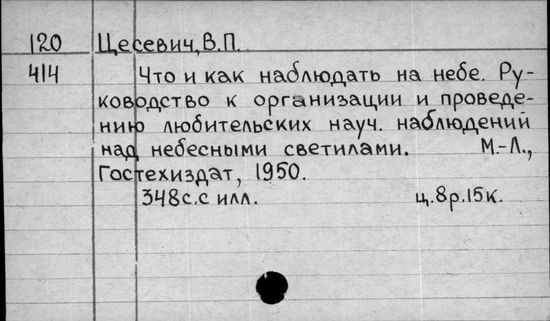 120 Цесевич, В.П.
414 Что и как наблюдать на небе. Ру-
ководство к организации и проведе-
нию любительских науч. наблюдений
над небесными светилами. М.-Л.,
Гостехиздат, 1950.
348с.с илл. ц.8р.15к.